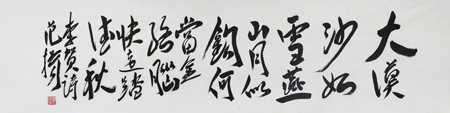 大漠
沙如
雪燕
山月似
鈎何
當金
絡腦
快走踏
清秋
李賀詩
范